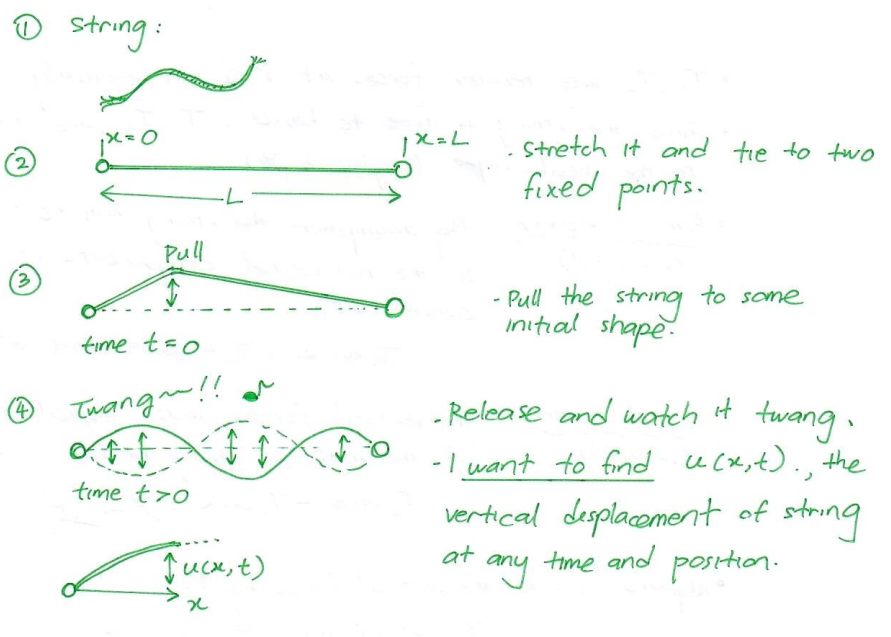 ① String:
② x=0 x=L
L
. Stretch it and tie to two
fixed points.
③ Pull
time t=0
- Pull the string to some
initial shape.
④ Twang~!!
time t>0
. Release and watch it twang.
- I want to find u(x,t)., the
vertical displacement of string
at any time and position.
u(x,t)
x